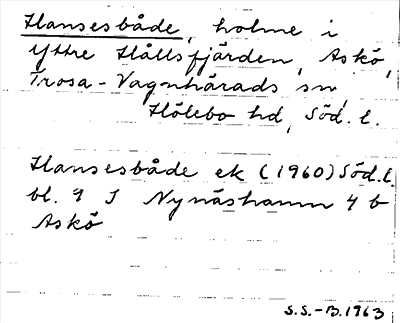 Hansesbåde, holme i
Yttre Hållsfjärden, Askö,
Trosa-Vagnhärads sn,
Hölebo hd, Söd. l.
Hansesbåde ek (1960) Söd. l.
bl. 9 I Nynäshamn 4 b
Askö
S.S.-B. 1963